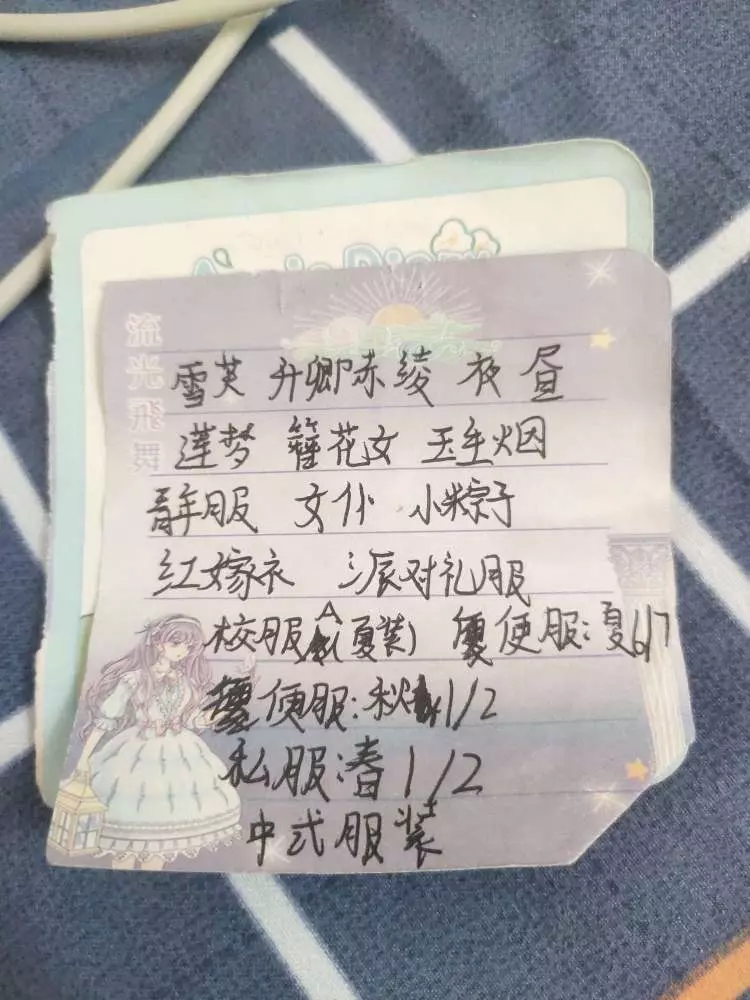 流光飛舞
雪芙 升卿赤绫 夜 昼
莲梦 簪花女 玉生烟
青年服 女仆 小粽子
红嫁衣 派对礼服
校服A(夏装) 便服:夏6/7
便服:秋1/2
私服:春1/2
中式服装